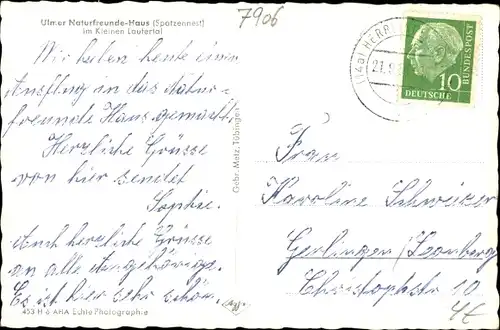 7906
Ulmer Naturfreunde-Haus (Spatzennest)
im Kleinen Lautertal
Wir haben heute einen
Ausflug in das Natur-
freunde Haus gemacht.
Herzliche Grüsse
von hier sendet
Sophie.
Auch herzliche Grüsse
an alle Angehörige.
Es ist hier sehr schön.
453 H 6 AHA Echte Photographie
Gebr. Metz, Tübingen
(14a) HERRL
21.9
10
DEUTSCHE
BUNDESPOST
Frau
Karoline Schweizer
Gerlingen/Leonberg
Christophstr 10
4t